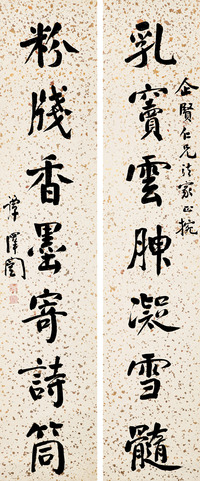 企賢仁兄法家正捥
乳竇雲腴凝雪髓
粉牋香墨寄詩筒
譚澤闓